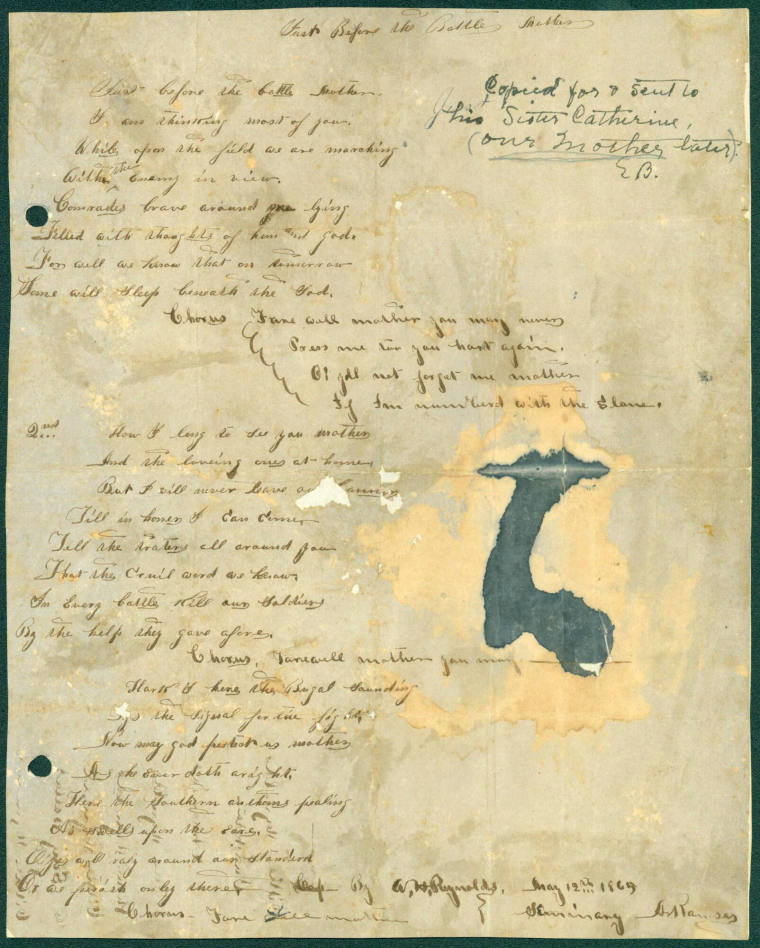 Just Before the Battle Mother
Copied for & sent to
his Sister Catherine,
(our Mother later).
E.B.
Just before the battle Mother.
I am thinking most of you.
While upon the field we are marching
With the Enemy in view.
Comrades brave around me lying
Filled with thoughts of home and god.
For well we know that on tomorrow
Some will sleep beneath the Sod.
Chorus Fare well mother you may never
Press me too you hart again.
O! yll not forget me mother
If Im numberd with the Slane.
2nd How I long to see you mother
And the loveing ones at home
But I will never leave our banner
Till in honer I can come
Tell the traters all around you
That the Cruil word we know
In Every battle Kill our Soldiers
By the help they gave afore.
Chorus, Farewell mother you may
Hark I here the Bugal Sounding
the Signal for the fight
Now may god protect us mother
As he Ever doth aright.
Here the Southern anthems pealing
As swells upon the eare.
will rally around our Standard
Or we perish only there By W. H. Reynolds, May 12th 1869
Chorus Fare well mother Seminary Arkansas